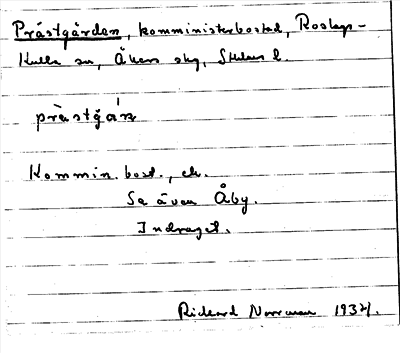 Prästgården, komministerbostad, Roslags-
Kulla sn, Åkers skg, Sthlms l.
prästgå̀ṙn
Kommin. bost., ek.
Se även Åby.
Indraget.
Rickard Norrman 1932.